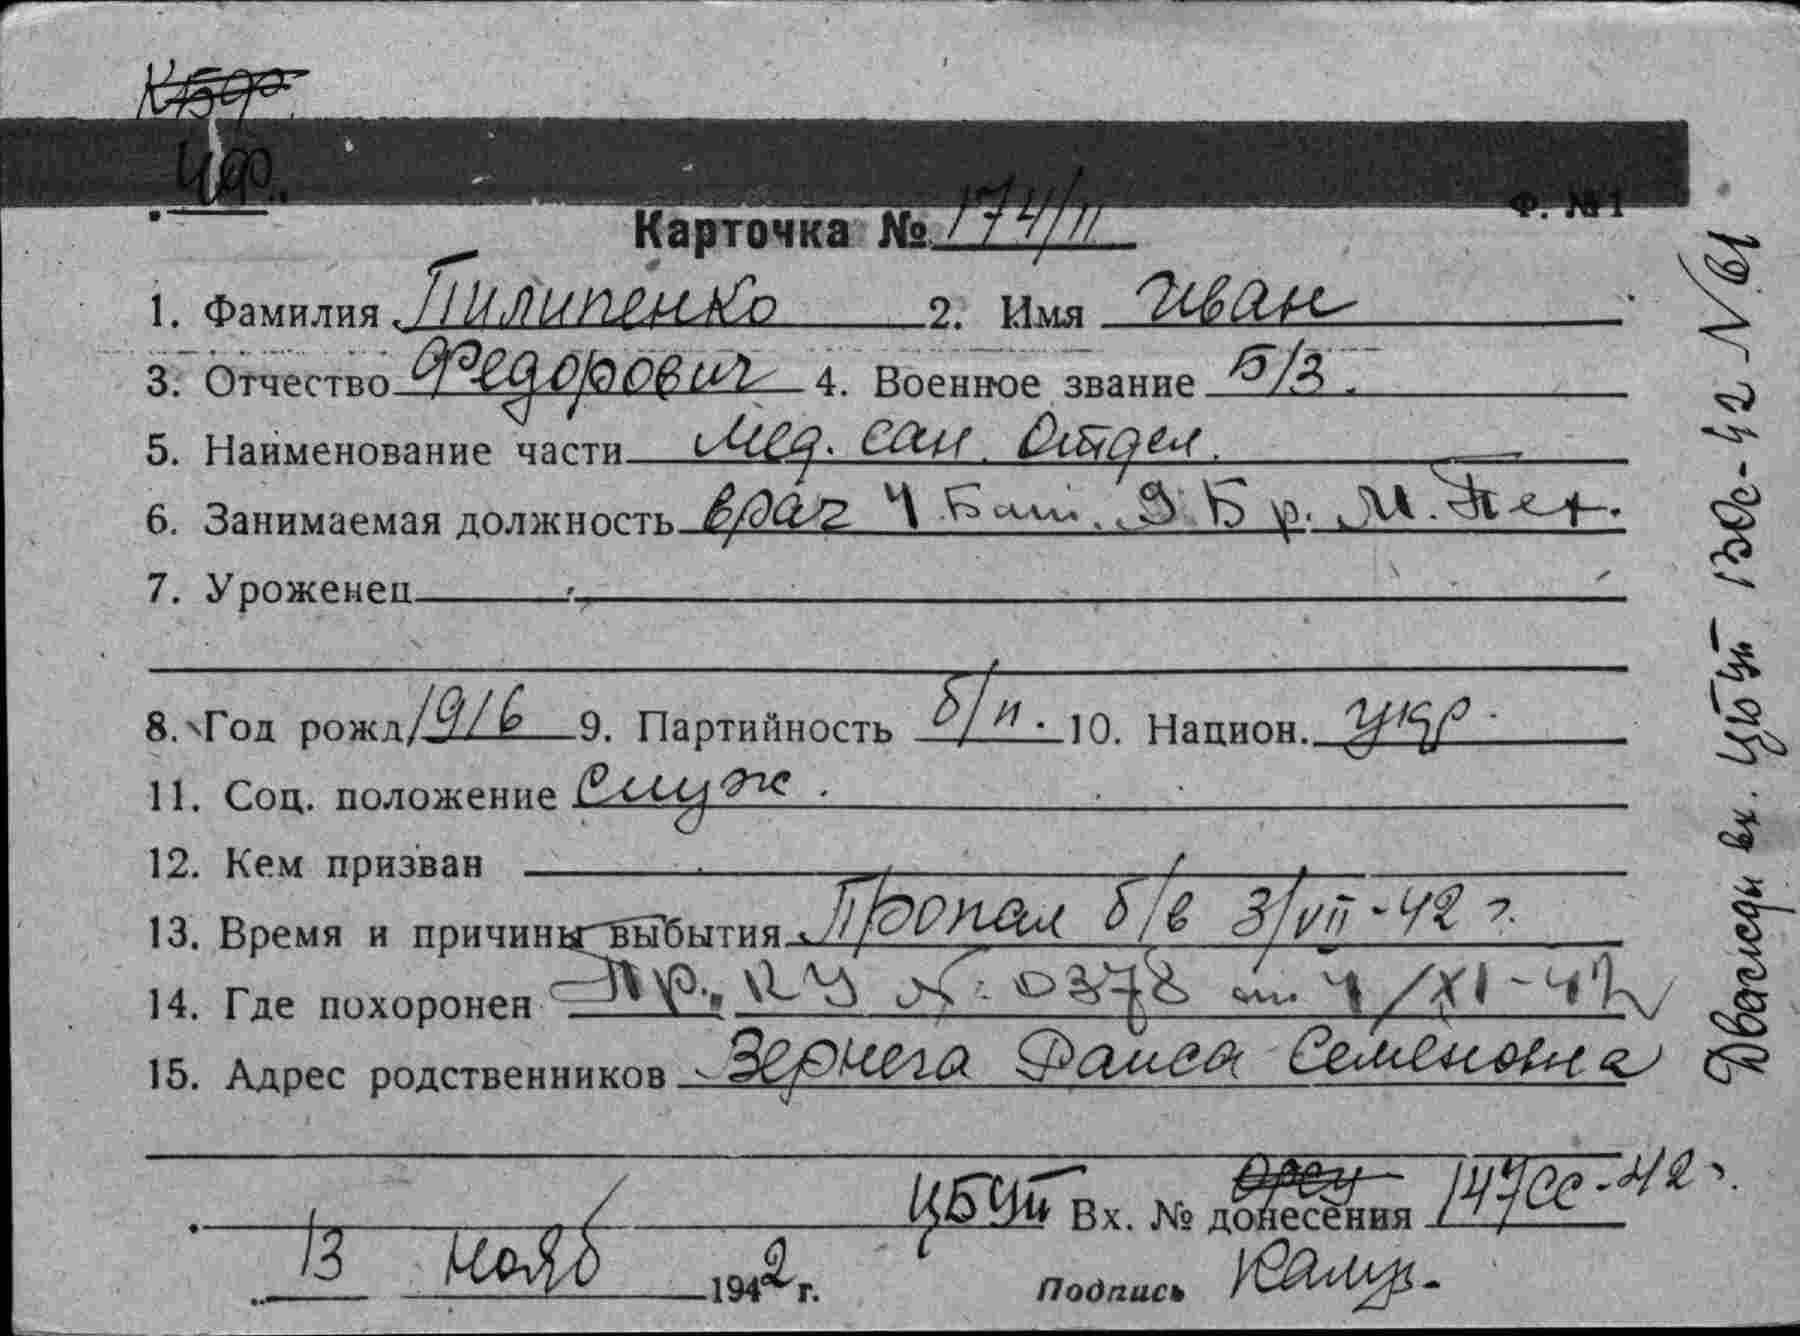 Ф. №1
Карточка № 174/II
1. Фамилия Пилипенко 2. Имя Иван
3. Отчество Федорович 4. Военное звание Б/З.
5. Наименование части Мед. сан. Отдел.
6. Занимаемая должность врач 4 Бат. 9 Бр. М. Пех.
7. Уроженец
8. Год рожд 1916 9. Партийность б/п. 10. Национ. укр.
11. Соц. положение Служ.
12. Кем призван
13. Время и причины выбытия Пропал б/в 3/VII-42 г.
14. Где похоронен Пр. №: 0378 от 4/XI-42
15. Адрес родственников Зернега Раиса Семеновна
ЦБУП Вх. № донесения 147сс-42 г.
13 нояб 1942 г. Подпись
вх. ЦБУП 130с-42 N 61